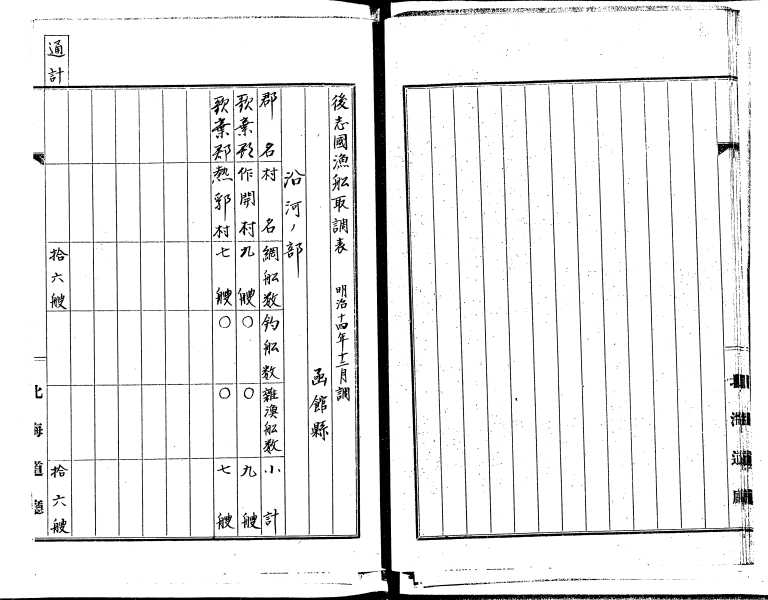 後志國漁舩取調表 明治十四年十二月調
函館縣
沿河ノ部
郡名 村名 網舩数 釣舩数 雜漁舩数 小計
歌棄郡 作開村 九艘 〇 〇 九艘
歌棄郡 熱郛村 七艘 〇 〇 七艘
通計 拾六艘 拾六艘
北海道廳
北海道廳